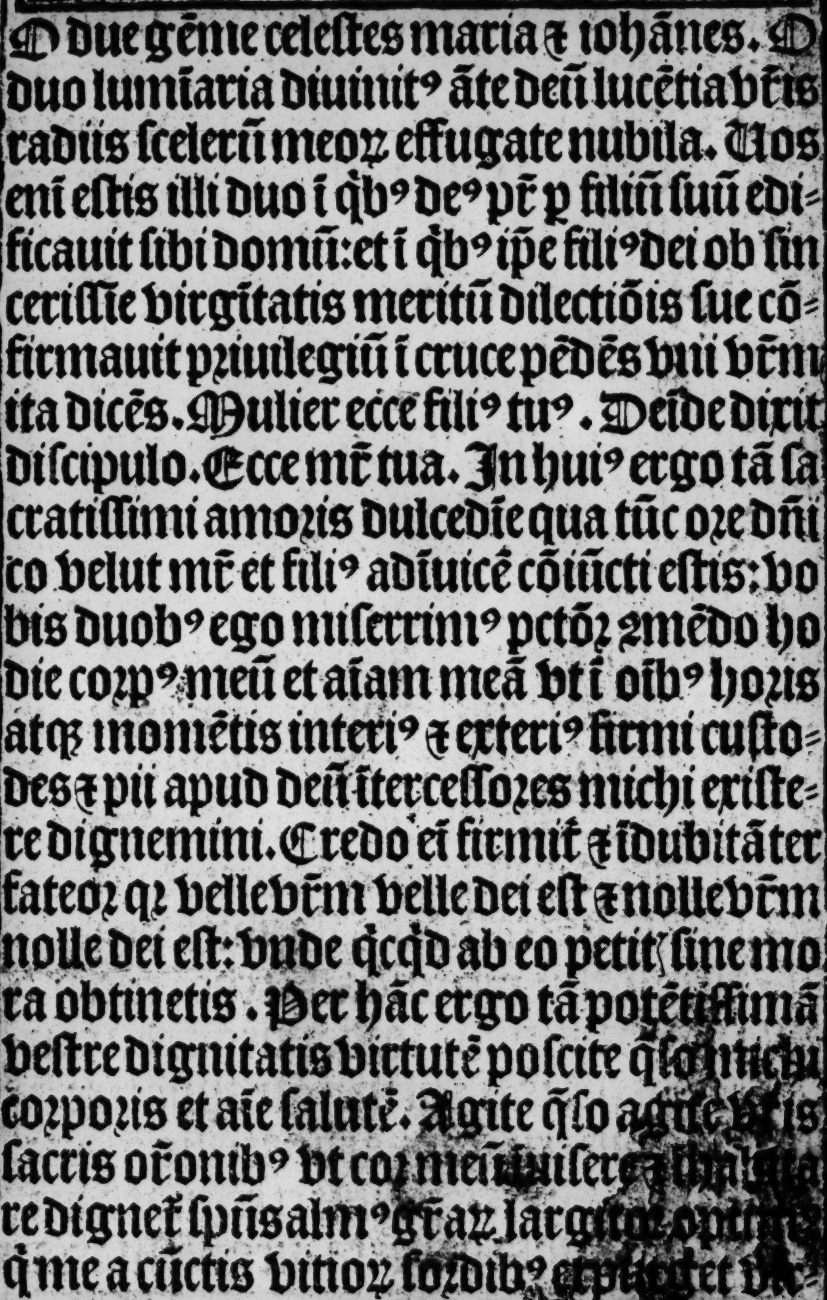 O due gēme celestes maria ⁊ iohānes. O
duo lumīaria diuinitꝰ āte deū lucētia vr̄is
radiis ſcelerū meoꝝ effugate nubila. Uos
enī eſtis illi duo ī q̇bꝰ deꝰ pr̄ ꝑ filiū ſuū edi⸗
ficauit ſibi domū: et ī q̇bꝰ ip̄e filiꝰ dei ob ſin
ceriſſīe virgītatis meritū dilectiōis ſue cō⸗
firmauit pꝛiuilegiū ī cruce pēdēs vni vr̄m
ita dicēs. Mulier ecce filiꝰ tuꝰ. Deīde dixit
diſcipulo. Ecce mr̄ tua. In huiꝰ ergo tā ſa
cratiſſimi amoꝛis dulcedīe qua tūc oꝛe dn̄i
co velut mr̄ et filiꝰ adīuicē cōiūcti eſtis: vo
bis duobꝰ ego miſerrimꝰ pctōꝝ ꝯmēdo ho
die coꝛpꝰ meū et aīam meā vt ī oībꝰ hoꝛis
atqꝫ momētis interiꝰ ⁊ exteriꝰ firmi cuſto⸗
des ⁊ pii apud deū īterceſſoꝛes michi exiſte⸗
re dignemini. Credo eī firmit̄ ⁊ īdubitāter
fateoꝛ qꝛ velle vr̄m velle dei eſt ⁊ nolle vr̄m
nolle dei eſt: vnde q̇cq̇d ab eo petitꝭ ſine mo
ra obtinetis. Per hāc ergo tā potētiſſimā
veſtre dignitatis virtutē poſcite q̄ſo michi
coꝛpoꝛis et aīe ſalutē. Agite q̄ſo agite vr̄is
ſacris or̄onibꝰ vt coꝛ meū
re dignet̄ ſpūs almꝰ gr̄aꝝ largitoꝛ optimꝰ
q̇ me a cūctis vitioꝝ ſoꝛdibꝰ